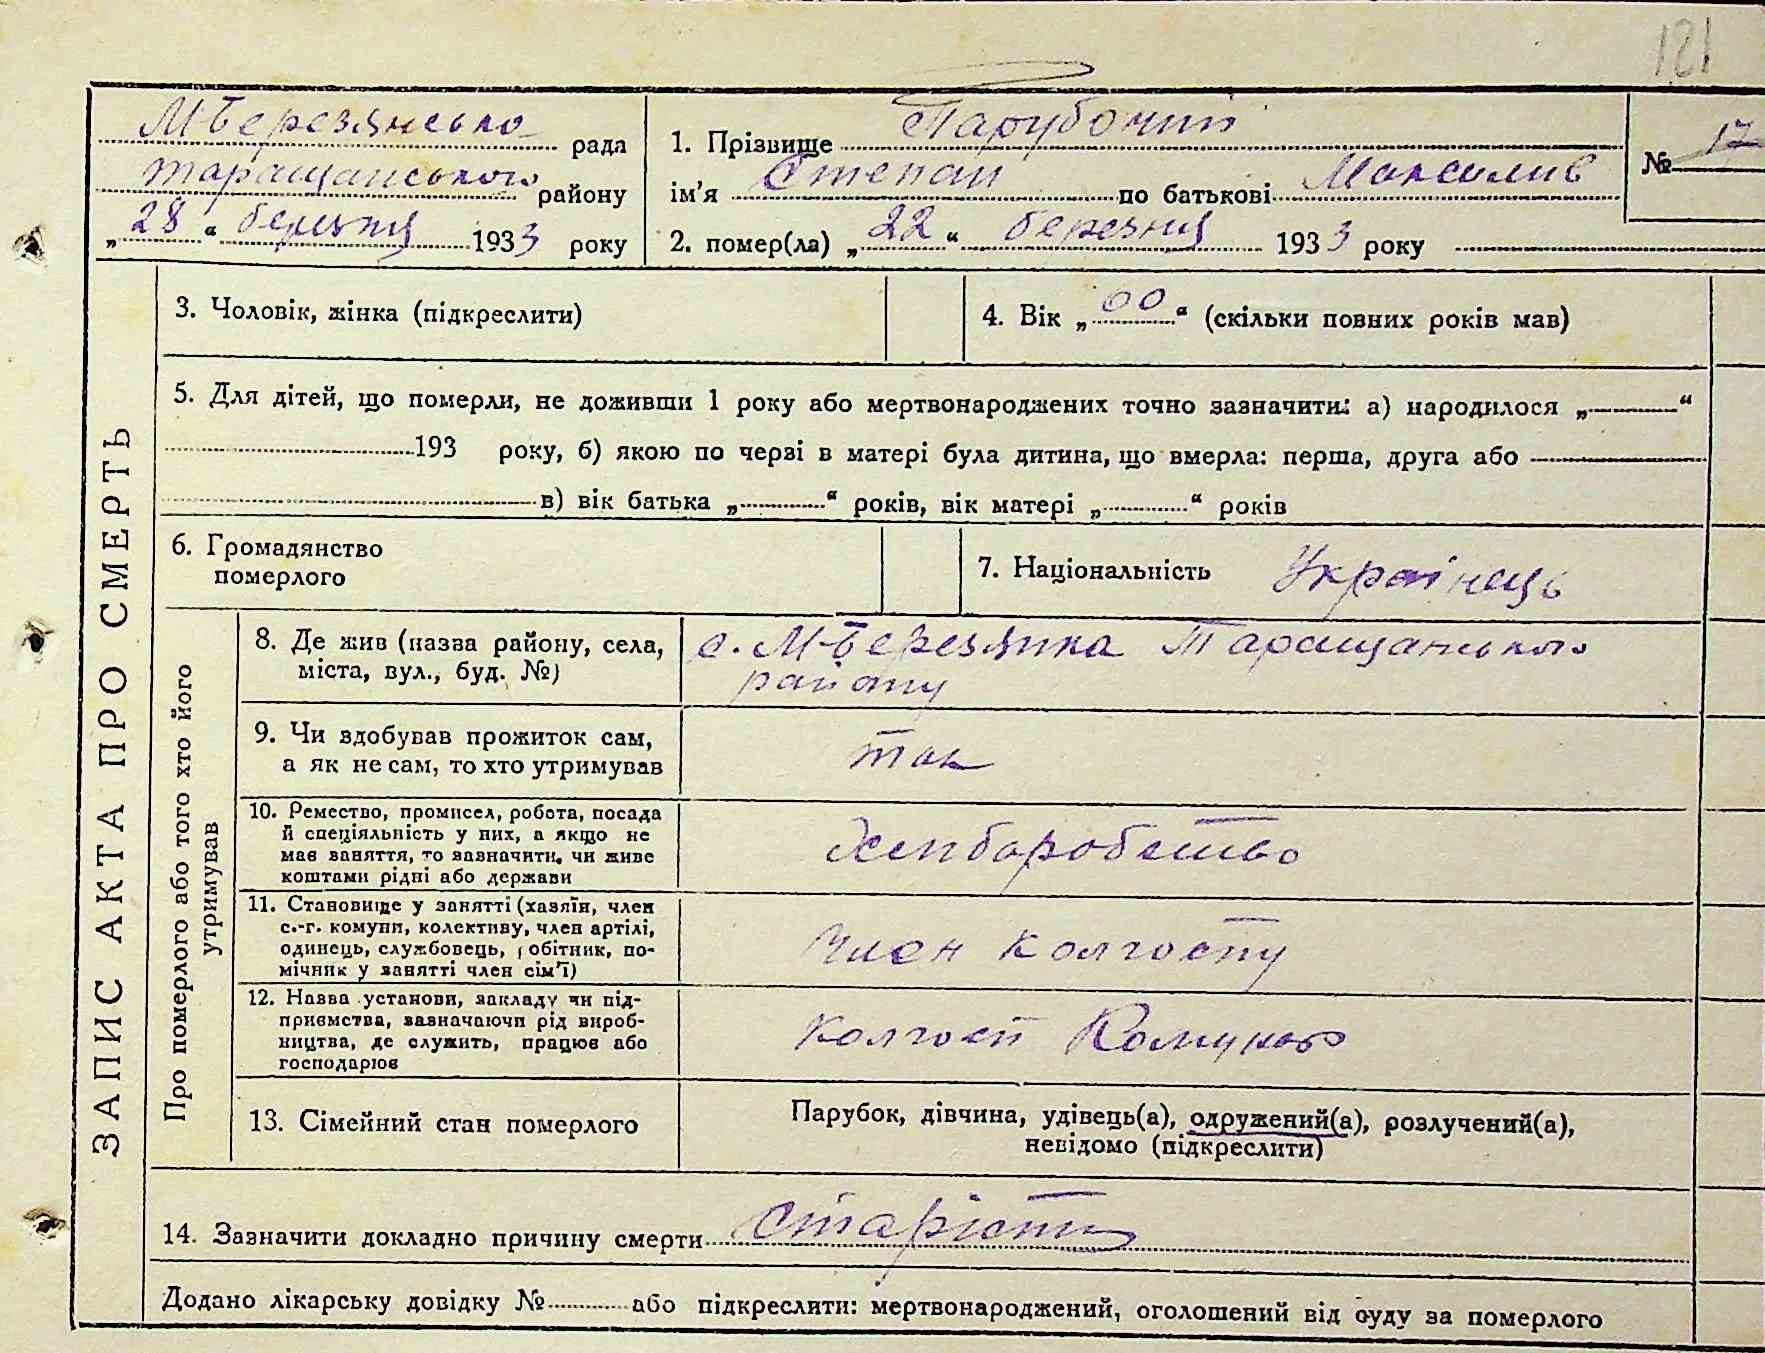 121
М-Березянсько рада
Таращанського району
„28“ березня 1933 року
1. Прізвище Парубочий
ім’я Степан по батькові Максимив
2. помер(ла) „22“ березня 1933 року
№ 17
ЗАПИС АКТА ПРО СМЕРТЬ
3. Чоловік, жінка (підкреслити)
4. Вік „60“ (скільки повних років мав)
5. Для дітей, що померли, не доживши 1 року або мертвонароджених точно зазначити: а) народилося „ “
193 року, б) якою по черві в матері була дитина, що вмерла: перша, друга або
в) вік батька „ “ років, вік матері „ “ років
6. Громадянство
померлого
7. Національність Українець
Про померлого або того хто його
утримував
8. Де жив (назва району, села,
міста, вул., буд. №)
с. М-Березянка Таращанського
району
9. Чи здобував прожиток сам,
а як не сам, то хто утримував
так
10. Ремество, промисел, робота, посада
й спеціяльність у них, а якщо не
має заняття, то зазначити, чи живе
коштами рідні або держави
Хлібаробство
11. Становище у занятті (хазяїн, член
с.-г. комуни, колективу, член артілі,
одинець, службовець, робітник, по-
мічник у занятті член сім’ї)
Член колгоспу
12. Назва установи, закладу чи під-
приємства, зазначаючи рід вироб-
ництва, де служить, працює або
господарює
Колгосп
13. Сімейний стан померлого
Парубок, дівчина, удівець(а), одружений(а), розлучений(а),
невідомо (підкреслити)
14. Зазначити докладно причину смерти Старісти
Додано лікарську довідку № або підкреслити: мертвонароджений, оголошений від суду за померлого